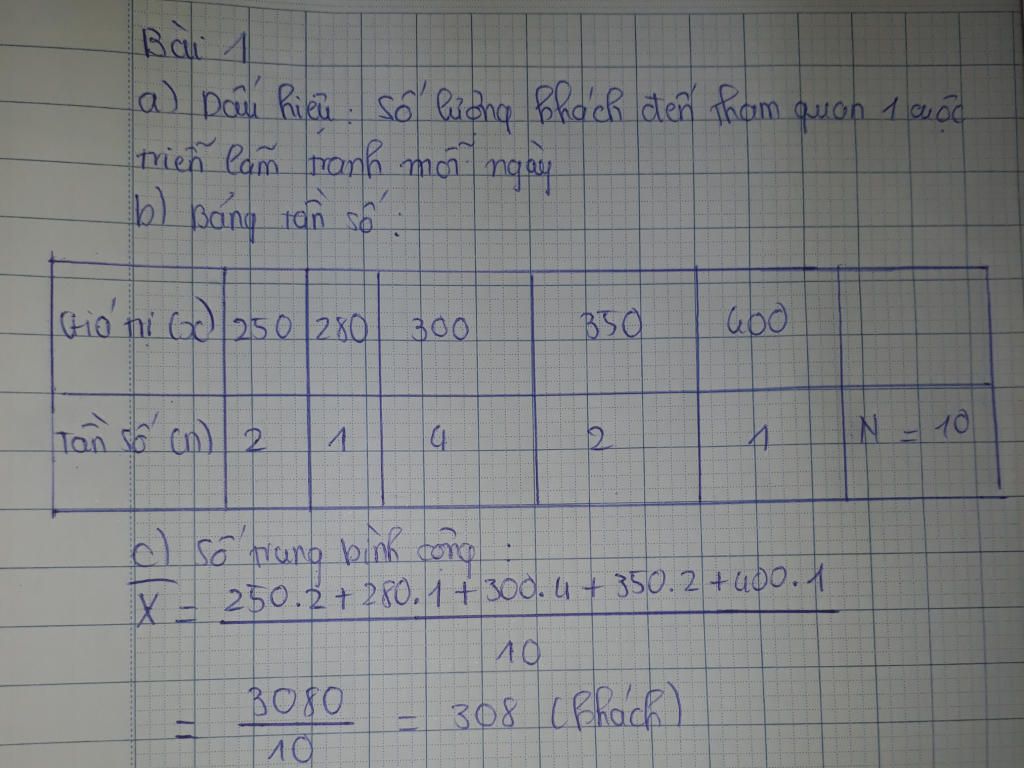 Bài 1
a) Dấu hiệu : Số lượng khách đến tham quan 1 cuộc
triển lãm tranh mỗi ngày
b) Bảng tần số :
Giá trị (x) 250 280 300 350 400
Tần số (n) 2 1 4 2 1 N = 10
c) Số trung bình cộng :
X̅ = 250.2 + 280.1 + 300.4 + 350.2 + 400.1
10
= 3080 / 10 = 308 (khách)